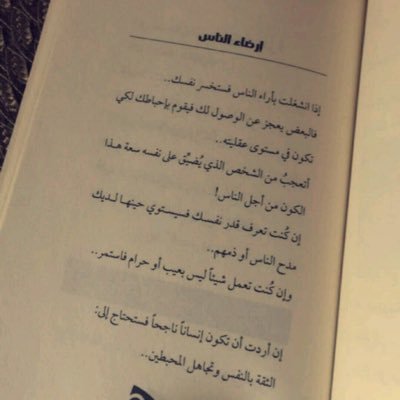 ارضاء الناس
إذا انشغلت بآراء الناس فستخسر نفسك..
فالبعض يعجز عن الوصول لك فيقوم بإحباطك لكي
تكون في مستوى عقليته..
أتعجبُ من الشخص الذي يُضيِّق على نفسه سعة هذا
الكون من أجل الناس!
إن كُنت تعرف قدر نفسك فسيستوي حينها لديك
مدح الناس أو ذمهم..
وإن كُنت تعمل شيئاً ليس بعيب أو حرام فاستمر..
إن أردت أن تكون إنساناً ناجحاً فستحتاج إلى:
الثقة بالنفس وتجاهل المحبطين..